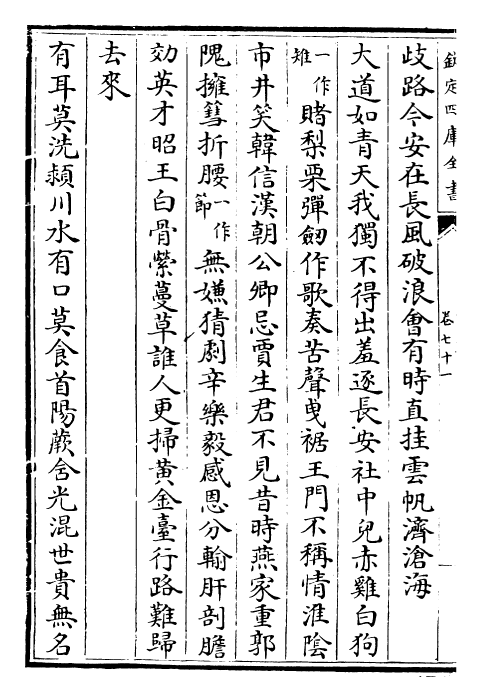 欽定四庫全書
卷七十一
歧路今安在長風破浪會有時直挂雲帆濟滄海
大道如青天我獨不得出羞逐長安社中兒赤雞白狗
一作雉賭梨栗彈劒作歌奏苦聲曵裾王門不稱情淮陰
市井笑韓信漢朝公卿忌賈生君不見昔時燕家重郭
隗擁篲折腰一作節無嫌猜劇辛樂毅感恩分輸肝剖膽
効英才昭王白骨縈蔓草誰人更掃黄金臺行路難歸
去來
有耳莫洗潁川水有口莫食首陽蕨含光混世貴無名